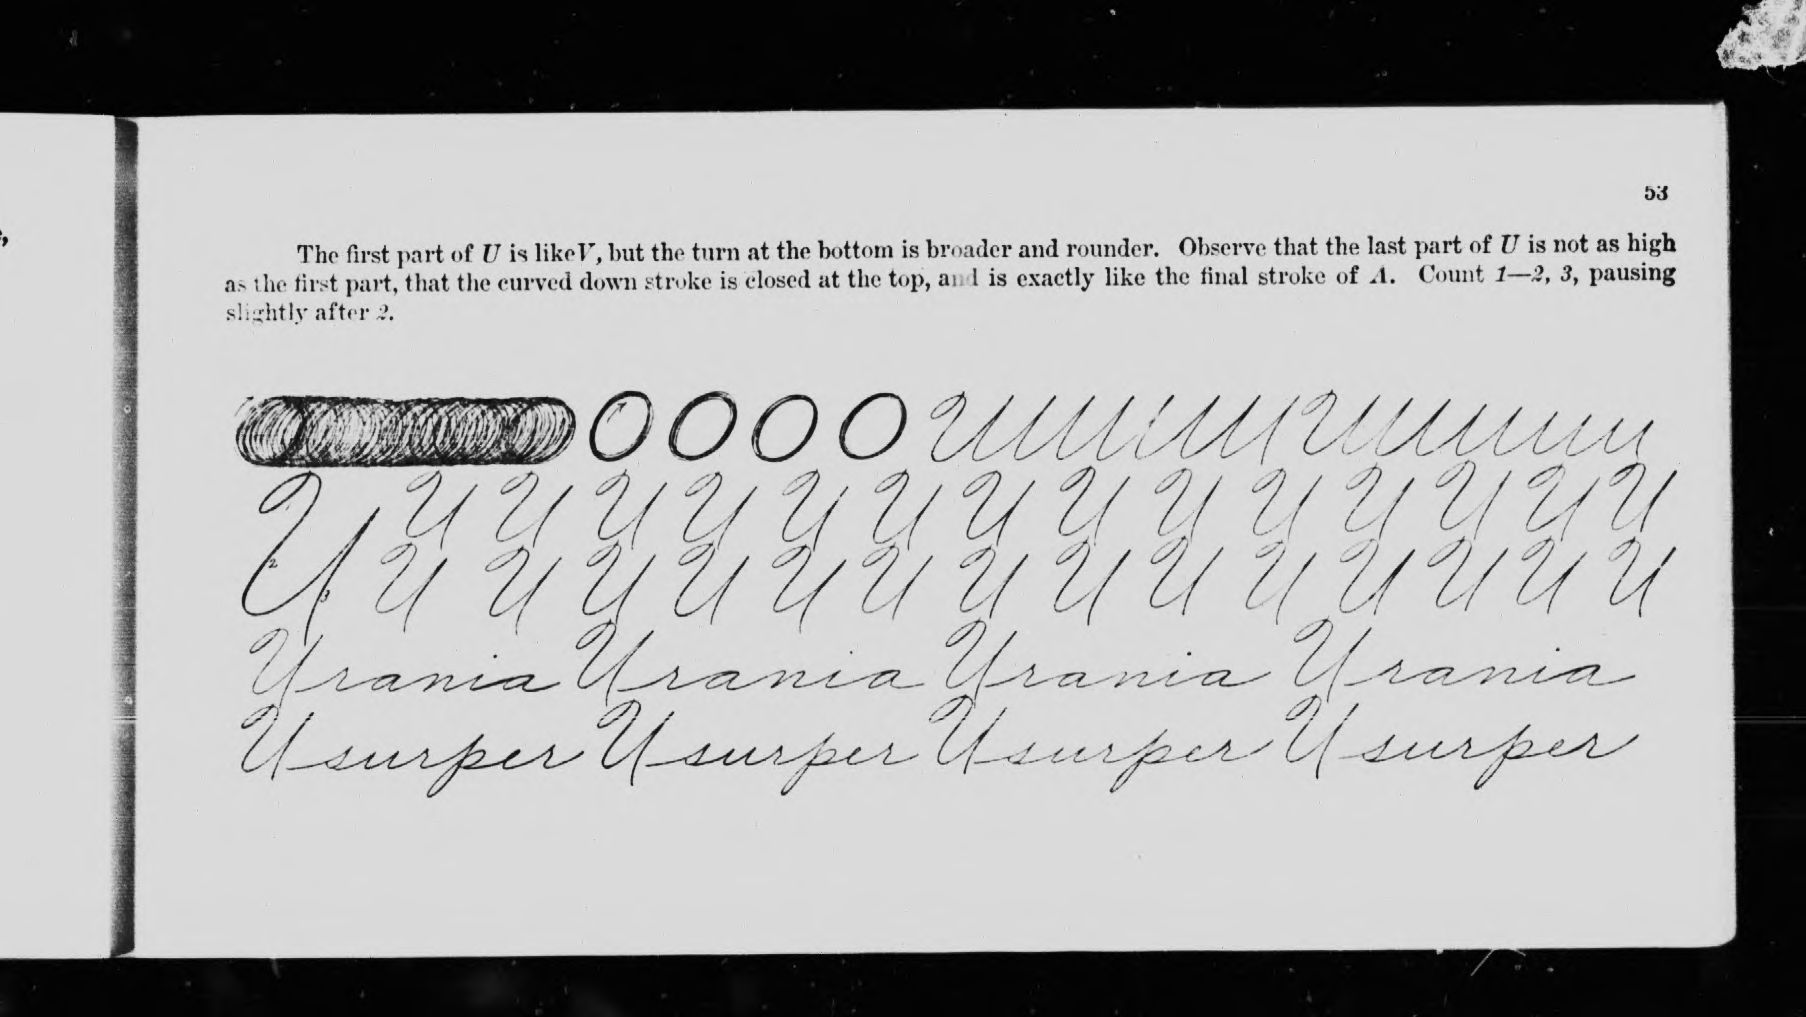 53
The first part of U is like V, but the turn at the bottom is broader and rounder. Observe that the last part of U is not as high
as the first part, that the curved down stroke is closed at the top, and is exactly like the final stroke of A. Count 1—2, 3, pausing
slightly after 2.
O O O O U U
U U U U U U U U U U U U U U U
2 3 U U U U U U U U U U U U U U
Urania Urania Urania Urania
Usurper Usurper Usurper Usurper